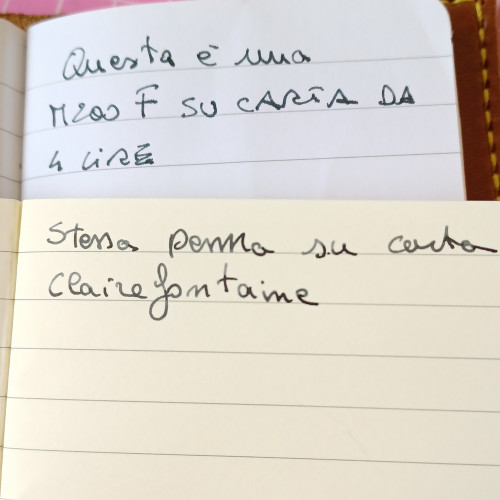 Questa è una
M200 F SU CARTA DA
4 LIRE
Stessa penna su carta
Clairefontaine